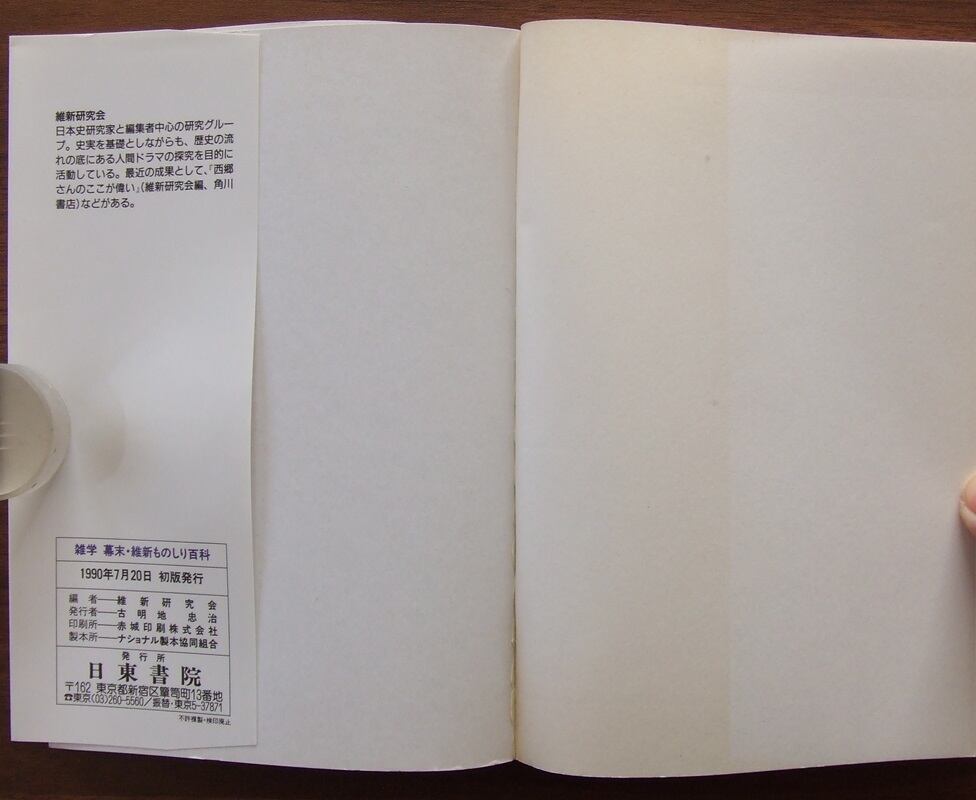 維新研究会
日本史研究家と編集者中心の研究グルー
プ。史実を基礎としながらも、歴史の流
れの底にある人間ドラマの探究を目的に
活動している。最近の成果として、『西郷
さんのここが偉い』(維新研究会編、角川
書店)などがある。
雑学 幕末・維新ものしり百科
1990年7月20日 初版発行
編 者──維新研究会
発行者──古明地 忠治
印刷所──赤城印刷株式会社
製本所──ナショナル製本協同組合
発行所
日東書院
〒162 東京都新宿区簞笥町13番地
☎東京(03)260-5560/振替・東京5-37871
不許複製・検印廃止